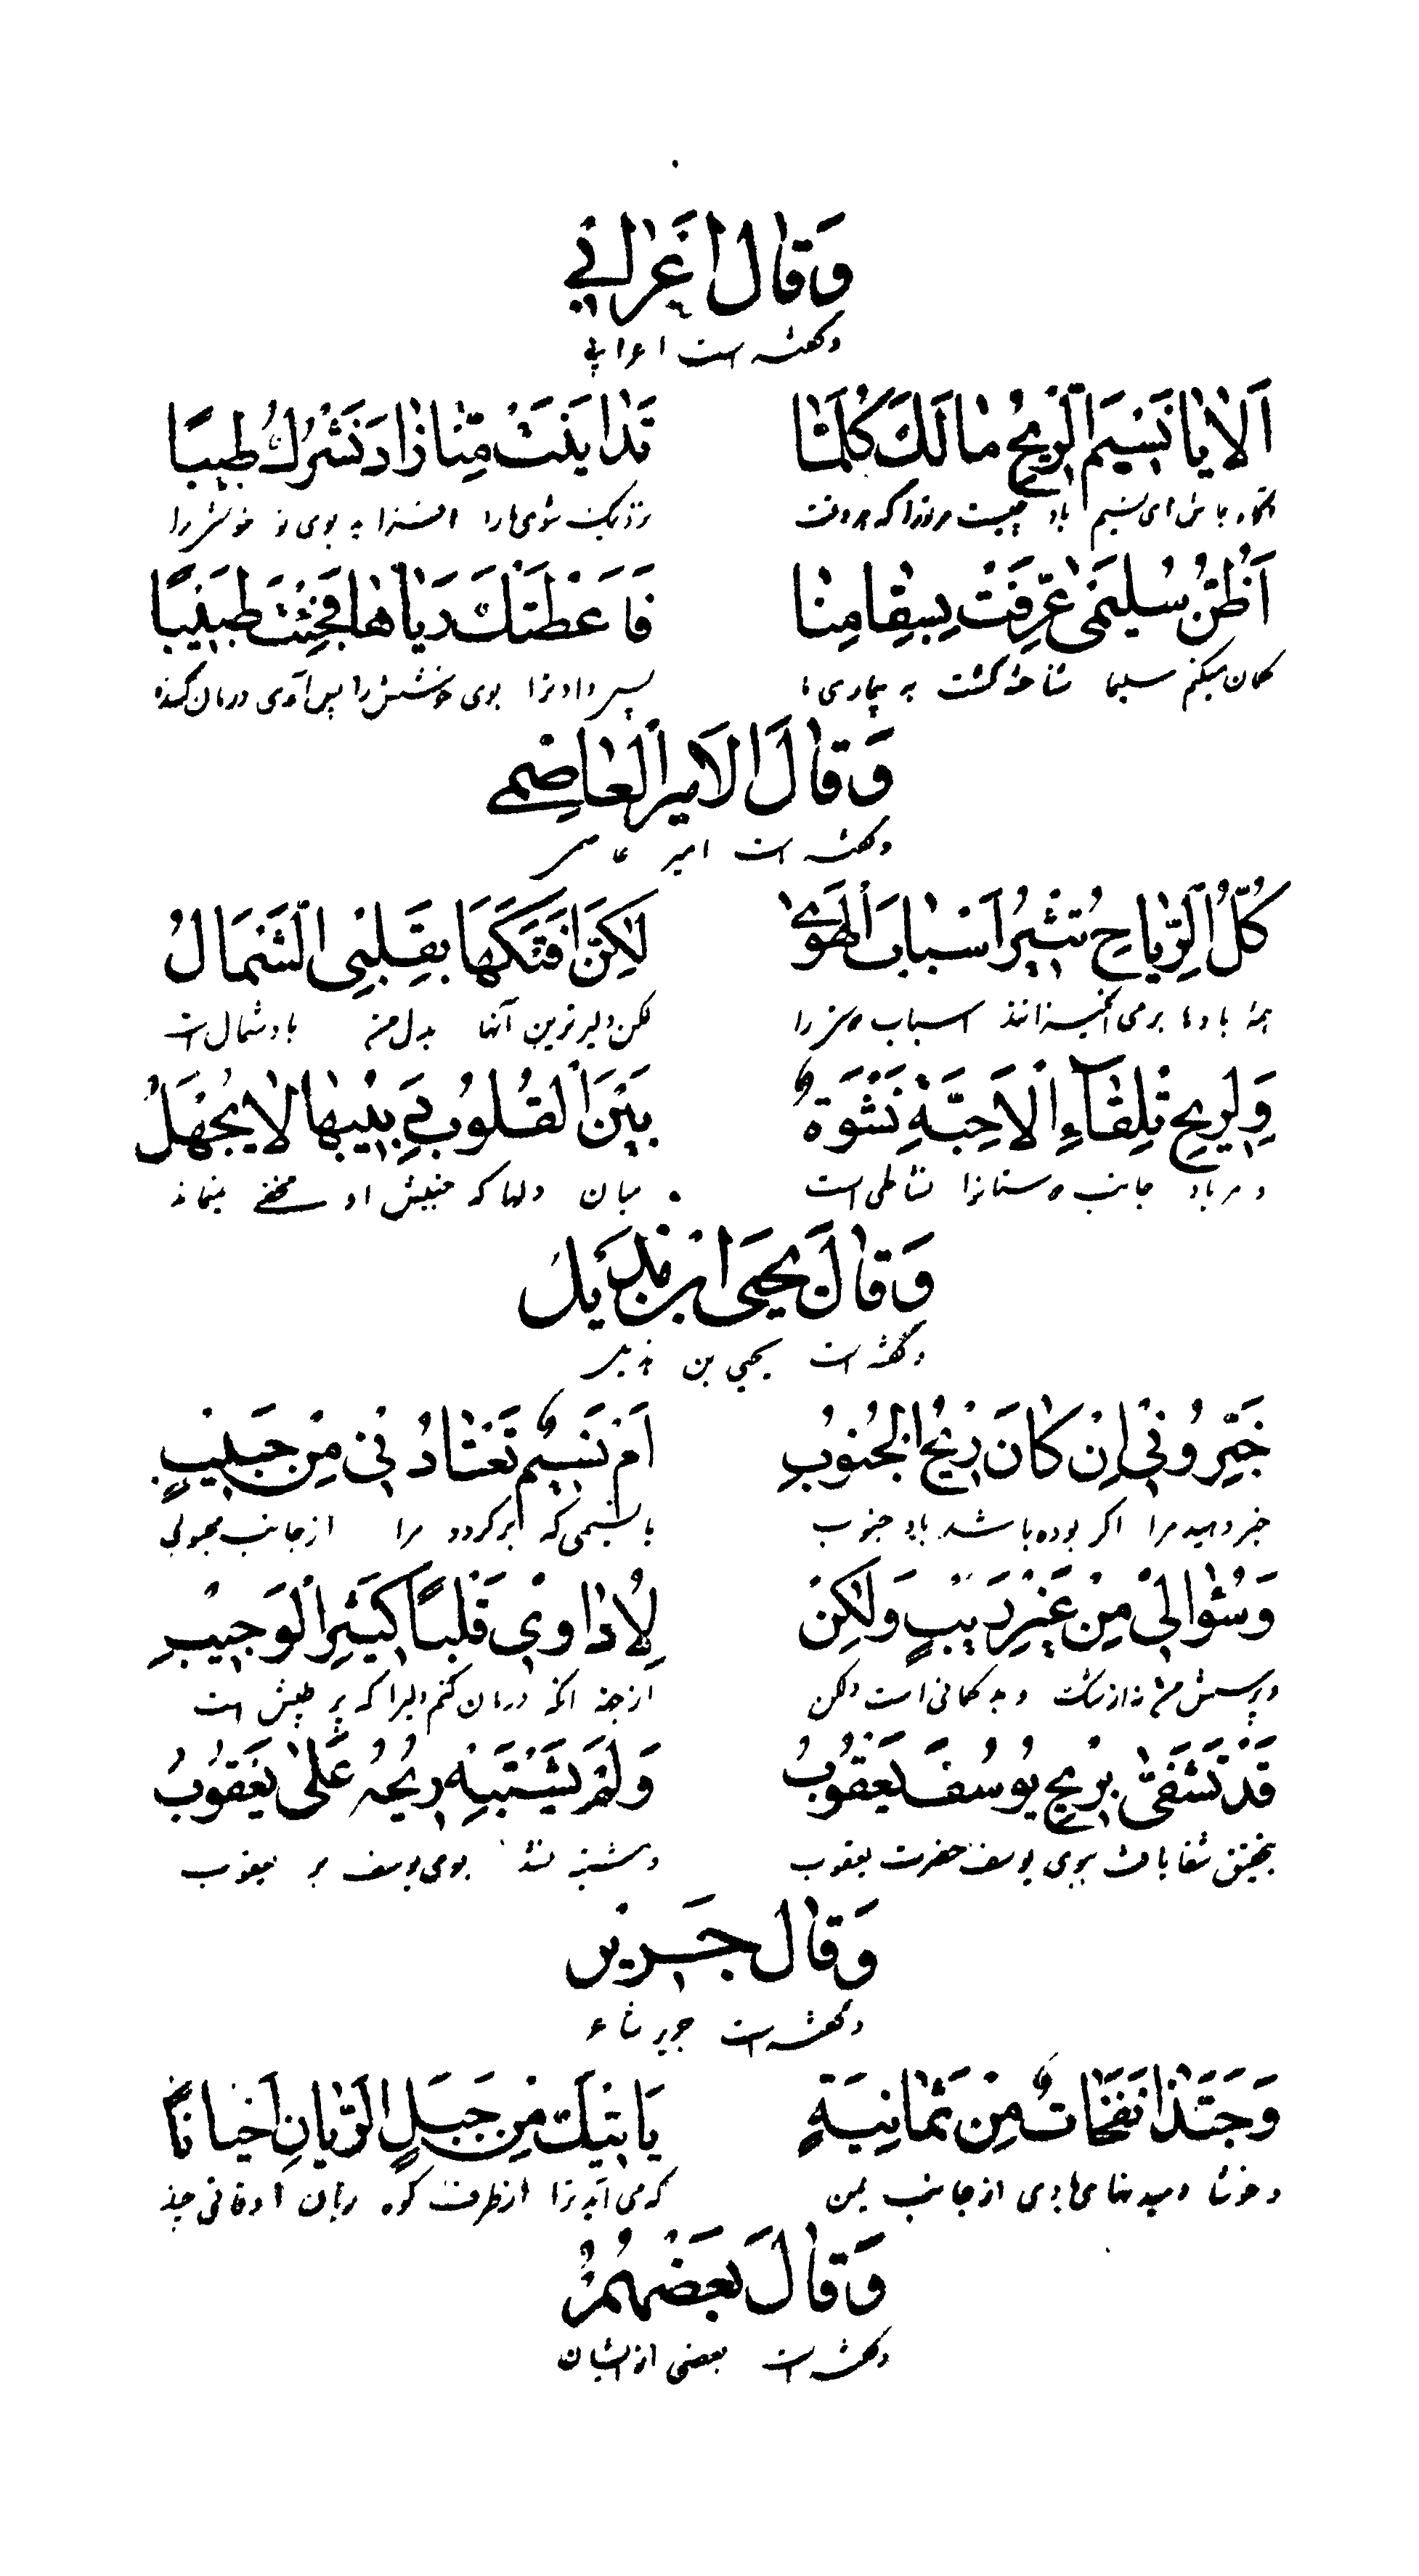 وَقَالَ اَعْرَابِي
وگفته است اعرابی
اَلَا يَا نَسِيْمَ الرِّيْحِ مَا لَكَ كُلَّمَا تَدَايَنَتْ مِنَّا زَادَ نَشْرُكَ طِيْبًا
آگاه باش ای نسیم باد چیست مر ترا که هر وقت نزدیک شوی مارا افزاید بوی تو خوشتر را
اَظُنُّ سُلَيْمٰى عُرِّفَتْ بِسِقَامِنَا فَاَعْطَتْكَ رَيَّاهَا فَجِئْتَ طَبِيْبًا
گمان میکنم سلیما شناخته گشت به بیماری ما پس داد ترا بوی خوشش را پس آمدی درمان کننده
وَقَالَ الْاَمِيْرُ الْعَاصِمِي
وگفته است امیر عاصمی
كُلُّ الرِّيَاحِ تُثِيْرُ اَسْبَابَ الْهَوٰى لٰكِنَّ اَفْتَكَهَا بِقَلْبِى الشَّمَالُ
همهٔ بادها برمی انگیزانند اسباب را لکن دلیرترین آنها بدل من باد شمال است
وَلِرِيْحِ تِلْقَاءِ الْاَحِبَّةِ نَشْوَةٌ بَيْنَ الْقُلُوبِ دَبِيْبُهَا لَا يُجْهَلُ
و مر باد جانب دوستانرا نشاطی است میان دلها که جنبش او مخفی نمیماند
وَقَالَ يَحْيَى ابْنُ هُذَيْلٍ
وگفته است یحیی بن هذیل
خَبِّرُوْنِيْ اِنْ كَانَ رِيْحُ الْجَنُوْبِ اَمْ نَسِيْمٌ تَعْتَادُنِيْ مِنْ حَبِيْبٍ
خبر دهید مرا اگر بوده باشد باد جنوب یا نسیمی که برگردد مرا از جانب محبوبی
وَسُؤَالِيْ مِنْ غَيْرِ رَيْبٍ وَلٰكِنْ لِاُدَاوِيْ قَلْبًا كَثِيْرَ الْوَجِيْبِ
و پرسش من نه از شک و بدگمانی است ولکن از جهة آنکه درمان کنم دلیرا که پر طپش است
قَدْ تَشَفّٰى بِرِيْحِ يُوسُفَ يَعْقُوْبُ وَلَمْ يَشْتَبِهْ رِيْحُهُ عَلٰى يَعْقُوْبُ
بتحقیق شفا یافت ببوی یوسف حضرت یعقوب و مشتبه نشد بوی یوسف بر یعقوب
وَقَالَ جَرِيْر
وگفته است جریر شاعر
وَحَبَّذَا نَفَحَاتٌ مِنْ يَمَانِيَةٍ يَاْتِيْكَ مِنْ جَبَلِ الرَّيَّانِ اَحْيَانًا
و خوشا دمیدنهای بادی از جانب یمن که می آید ترا از طرف کوه ریان اوقاتی چند
وَقَالَ بَعْضُهُمْ
وگفته است بعضی از ایشان